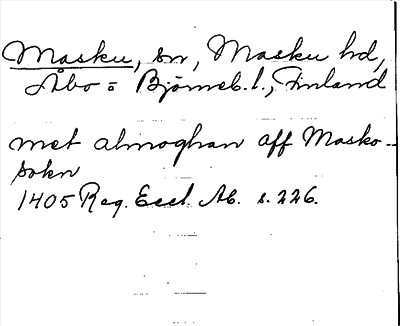 Masku, sn, Masku hd,
Åbo = Björneb. l., Finland
met almoghan aff Masko-
sokn
1405 Reg. Eccl. Ab. s. 226.